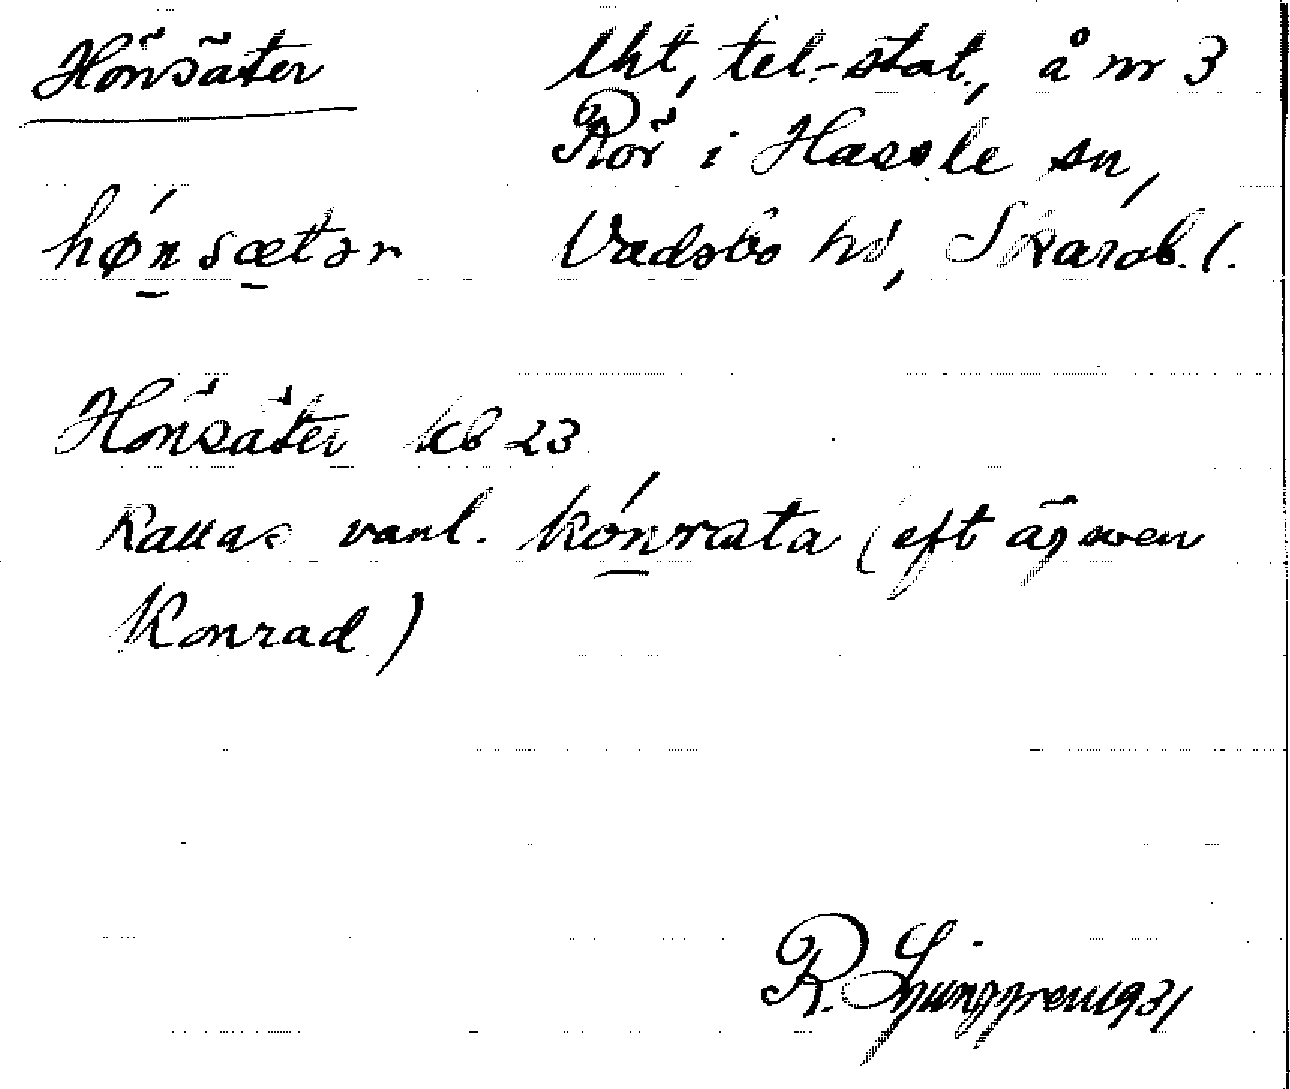 Hönsäter
lht, tel.-stat., å nr 3
Rör i Hassle sn,
hǿnsætər
Vadsbo hd, Skarab. l.
Hönsäter kb 23
Kallas vanl. kónrata (eft ägaren
Konrad)
R. Ljunggren 1931